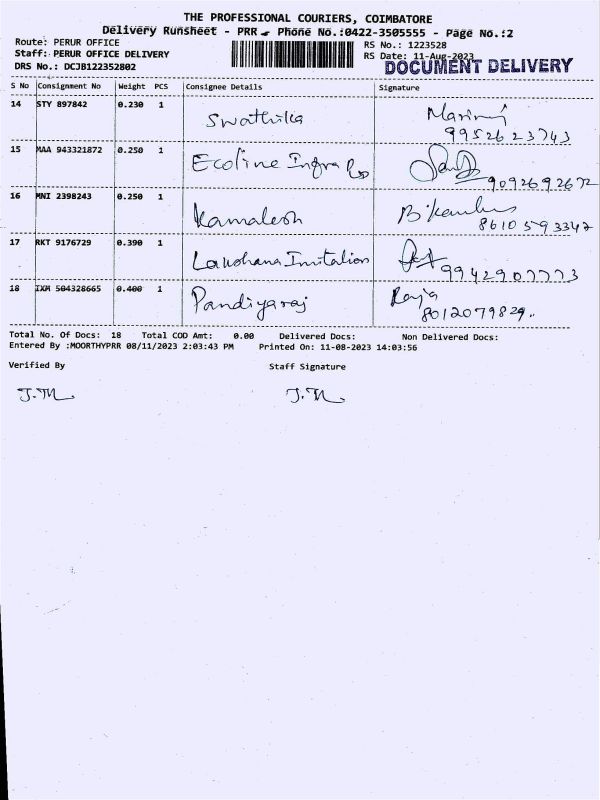 THE PROFESSIONAL COURIERS, COIMBATORE
Delivery Runsheet - PRR - Phone No.:0422-3505555 - Page No.:2
Route: PERUR OFFICE RS No.: 1223528
Staff: PERUR OFFICE DELIVERY RS Date: 11-Aug-2023
DRS No.: DCJB122352802 DOCUMENT DELIVERY
S No Consignment No Weight PCS Consignee Details Signature
14 STY 897842 0.230 1 Swathika
9952623743
15 MAA 943321872 0.250 1 Ecoline Ingra
9092692672
16 MNI 2398243 0.250 1 Kamalesh
8610593347
17 RKT 9176729 0.390 1 Lakshana Imitation
9942907773
18 IXM 504328665 0.400 1 Pandiyaraj Raja
8012079829..
Total No. Of Docs: 18 Total COD Amt: 0.00 Delivered Docs: Non Delivered Docs:
Entered By :MOORTHYPRR 08/11/2023 2:03:43 PM Printed On: 11-08-2023 14:03:56
Verified By Staff Signature
J.M J.M